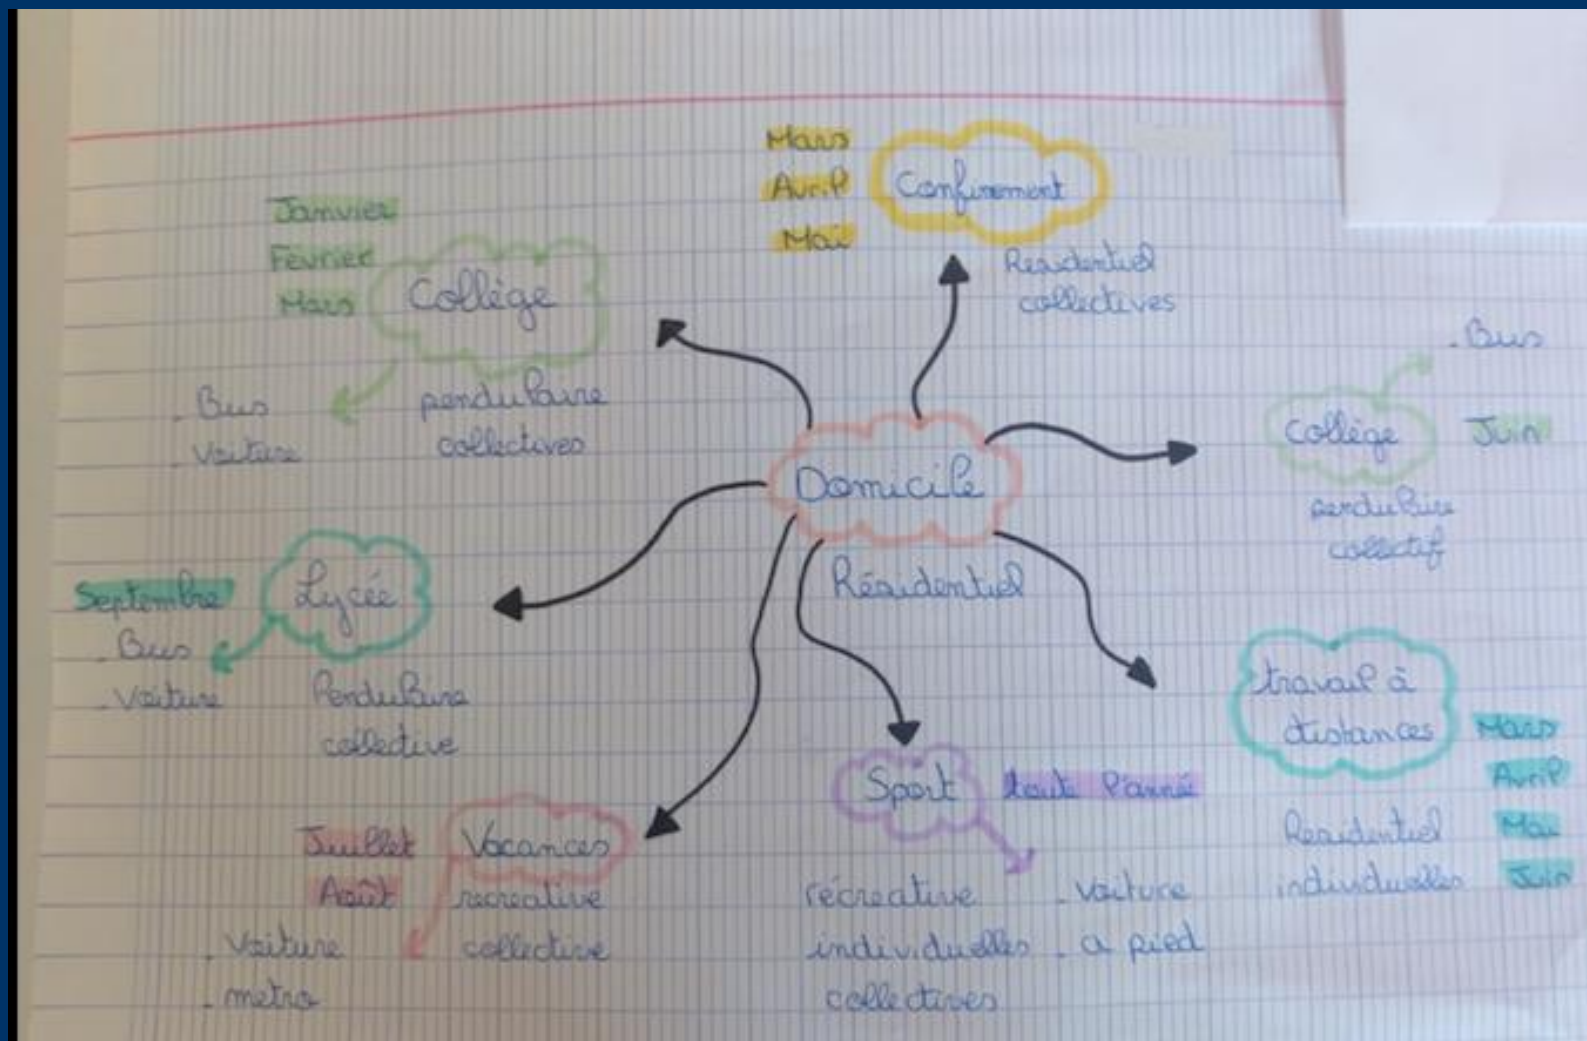 Mars
Avril
Mai
Confinement
Residentiel
collectives
Janvier
Fevrier
Mars
Collège
- Bus
- Voiture
pendulaire
collectives
- Bus
Collège
Juin
pendulaire
collectif
Domicile
Résidentiel
Septembre
Lycée
- Bus
- Voiture
Pendulaire
collective
travail à
distances
Mars
Avril
Mai
Juin
Residentiel
individuelles
Sport
toute l'anné
récreative
individuelles
collectives
- Voiture
- a pied
Juillet
Août
Vacances
recreative
collective
- Voiture
- metro